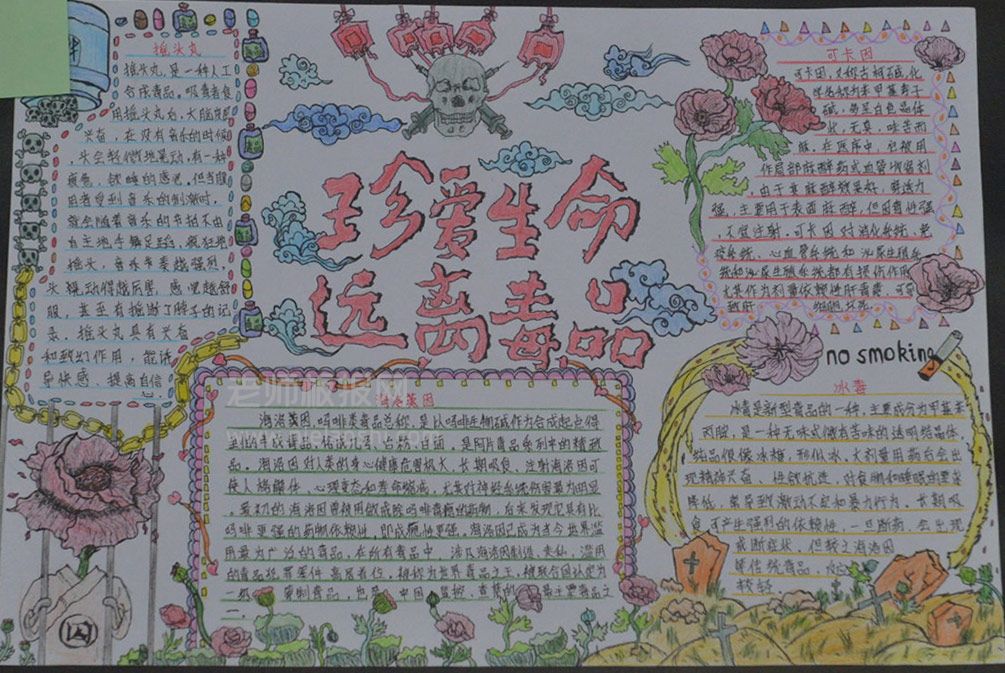 摇头丸
摇头丸,是一种人工
合成毒品。吸毒者食
用摇头丸后,大脑很
兴奋,在没有音乐的时候
头会轻微地晃动,有一种
疲惫、欲睡的感觉。但当服
用者受到音乐的刺激时,
就会随着音乐的节拍不由
自主地手舞足蹈,疯狂地
摇头,音乐节奏越强烈,
头晃动得越厉害,感觉越舒
服,甚至有摇断了脖子的记
录。摇头丸具有兴奋
和致幻作用,能诱
导快感、提高自信
心。
珍爱生命
远离毒品
可卡因
可卡因,又称古柯碱,化
学名称为苯甲基芽子
碱,多呈白色晶体
状,无臭,味苦而
麻。在医疗中,它被用
作局部麻醉药或血管收缩剂
由于其麻醉效果好,穿透力
强,主要用于表面麻醉,但因毒性强
不宜注射。可卡因对消化系统、免
疫系统、心血管系统和泌尿生殖系
统和泌尿生殖系统都有损伤作用
尤其作为剂量依赖性肝毒素,可导
致肝 细胞坏死
no smoking
老师板报网
海洛英因
海洛英因,吗啡类毒品总称,是以吗啡生物碱作为合成起点得
到的半合成毒品,俗称几号、白粉、白面,是阿片毒品系列中的精制
品。海洛因对人类的身心健康危害极大,长期吸食、注射海洛因可
使人格解体、心理变态和寿命缩减,尤其对神经系统伤害最为明显
。最初的海洛因曾被用做戒除吗啡毒瘾的药物,后来发现它具有比
吗啡更强的药物依赖性,即成瘾性更强。海洛因已成为当今世界滥
用最为广泛的毒品。在所有毒品中,涉及海洛因制造、贩运、滥用
的毒品犯罪案件高居首位,被称为世界毒品之王,被联合国认定为
一级 管制毒品,也是 中国 监控、查禁的 毒主要毒品之
一
冰毒
冰毒是新型毒品的一种,主要成分为甲基苯
丙胺,是一种无味或微有苦味的透明结晶体,
结晶很像冰糖,形似冰。大剂量用药后会出
现精神兴奋、性欲亢进,对食物和睡眠的要求
降低,常导致激动不安和暴力行为。长期吸
食可产生强烈的依赖性,一旦断药,会出现
戒断症状,但较之海洛因
等传统毒品
较轻
囚